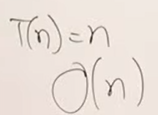 T(n) = n
O(n)